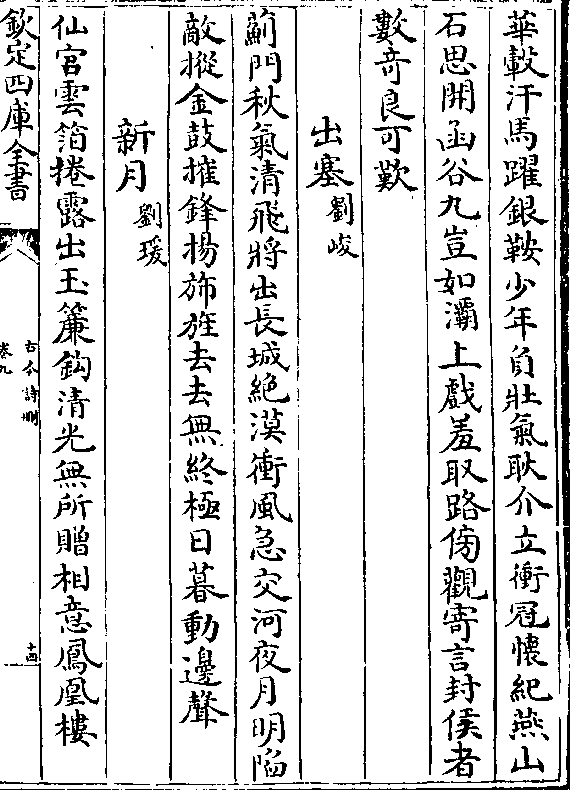 華轂汗馬躍銀鞍少年負壯氣耿介立衝冠懷紀燕山
石思開函谷九豈如灞上戲羞取路傍觀寄言封侯者
數竒良可歎
出塞劉峻
薊門秋氣清飛將出長城絕漠衝風急交河夜月明陷
敵摐金鼓摧鋒揚斾旌去去無終極日暮動邊聲
新月劉瑗
仙宫雲箔捲露出玉簾鈎清光無所贈相意鳳凰樓
欽定四庫全書
古今詩刪
卷九
十四